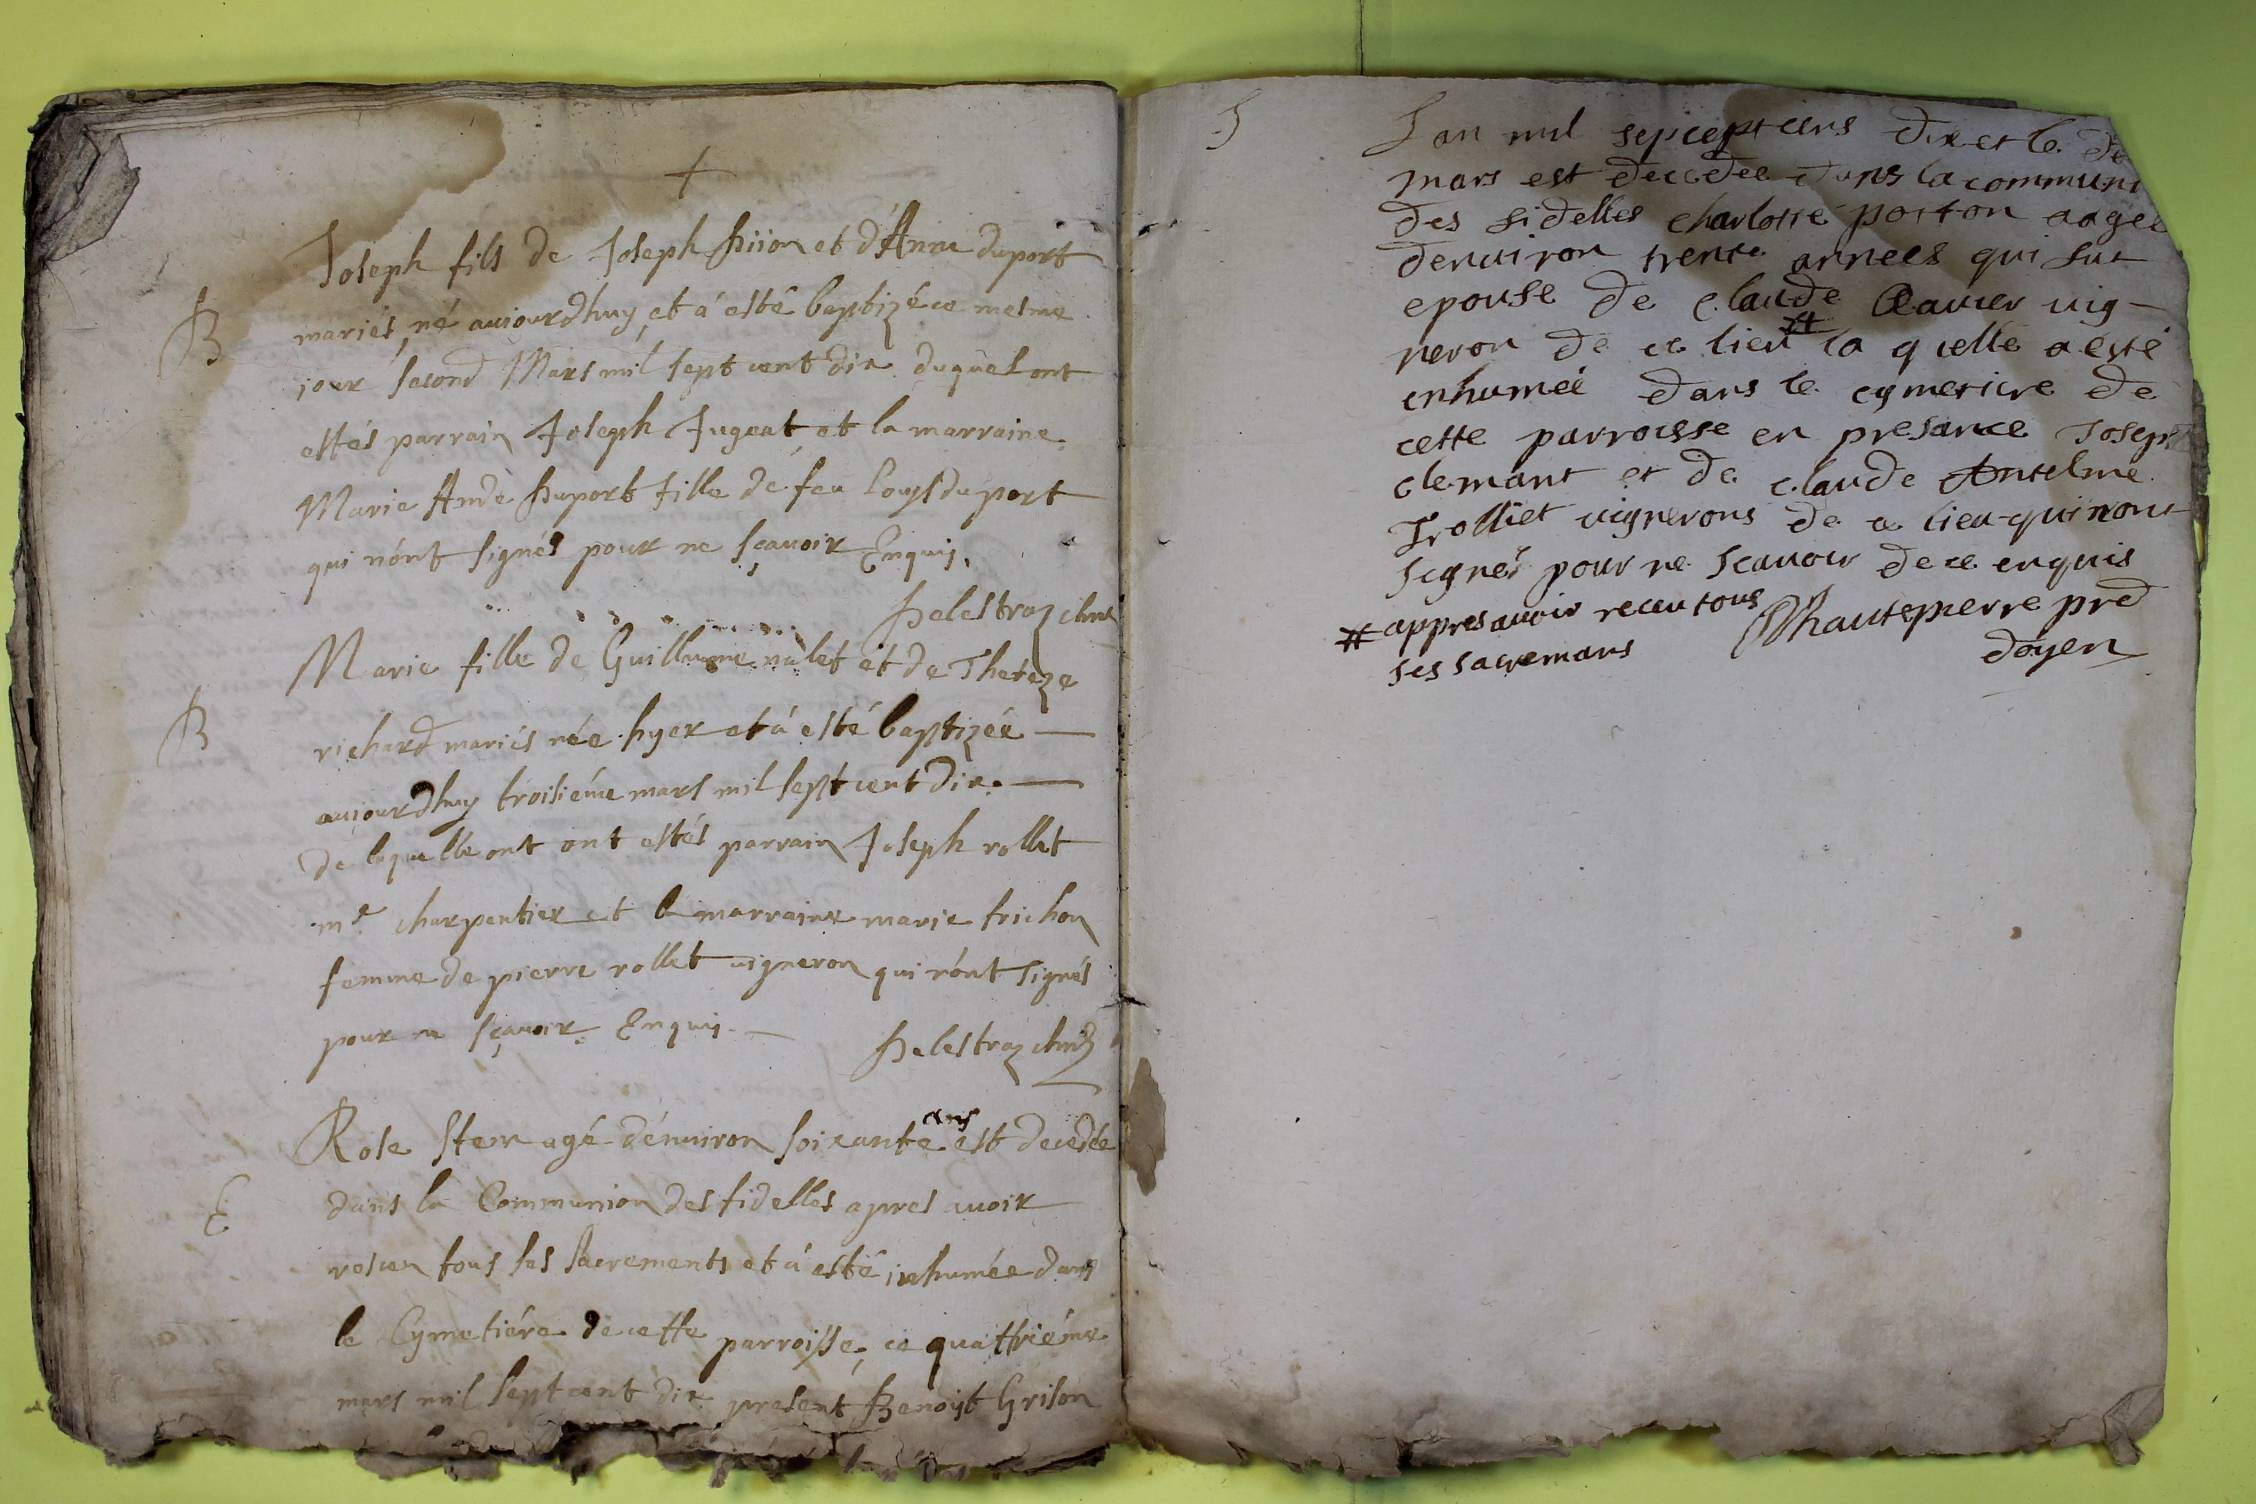 +
Joseph fils de Joseph et d'Anne duport
B
mariés, né aujourdhuy et á esté baptizé ce mesme
jour second Mars mil sept cent dix duquel ont
estés parrain Joseph Jugeat et la marraine
Marie Duport fille de feu Louys du port
qui nónt signés pour ne sçavoir Enquis.
Delestraz
Marie fille de Guillaume et de Thereze
B
richard mariés née hyer et á esté baptizée
aujourdhuy troisiéme mars mil sept cent dix.
de laquelle ont ont estés parrain Joseph rollet
me. charpentier et la marraine marie trichon
femme de pierre rollet vigneron qui nónt signés
pour ne sçavoir Enquis.
Delestraz
ans
Rose agé dénviron soixante est decedée
E
dans la Communion des fidelles apres avoir
resceu tous ses sacrements et á esté inhumée dans
le Cymetiére de cette parroisse, ce quattriéme
mars mil sept cent dix present Benoyt Grison
Lan mil sept cens dix et le
mars est decedee dans la communi
des fidelles charlotte aagee
denuiron trente annees qui fut
epouse de claude vig-
neron de ce lieu # la quelle a esté
enhumée dans le cymetiere de
cette parroisse en presance Joseph
clemant et de claude Antelme
Trolliet vignerons de ce lieu qui nont
signés pour ne scauoir de ce enquis
# appres auoir receu tous hautepierre pred
ses sacremans doyen